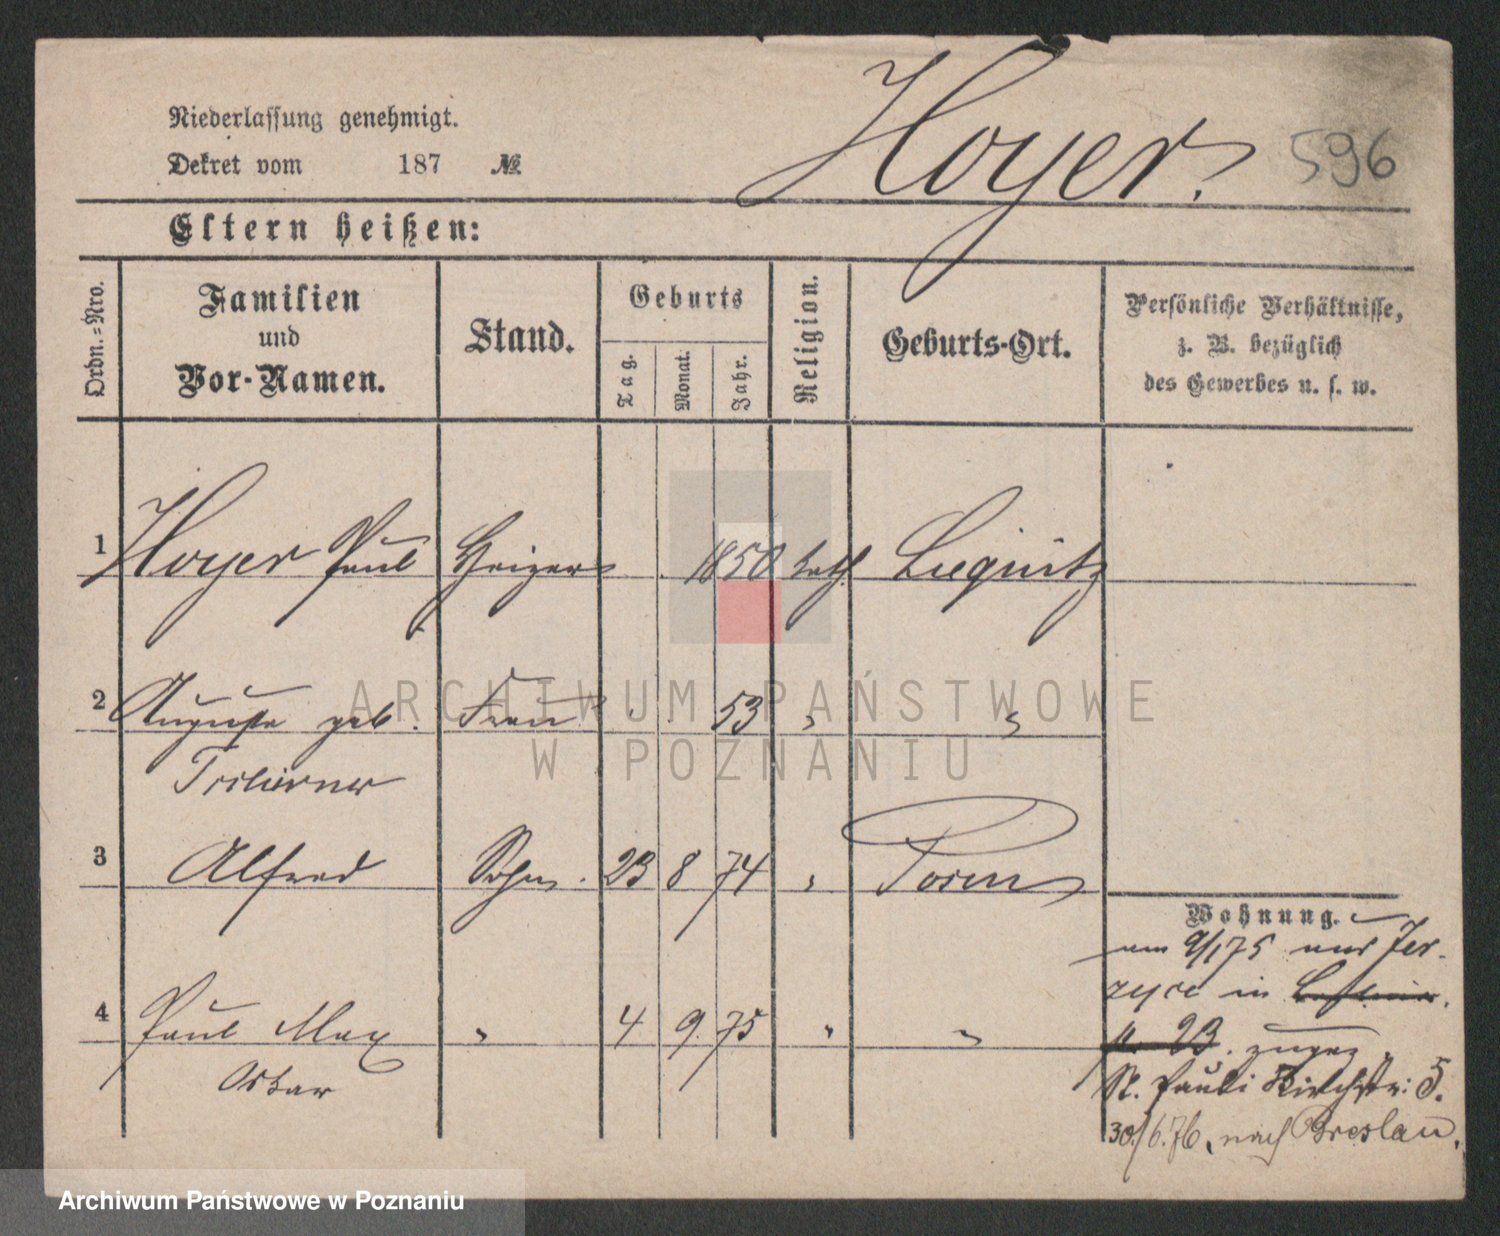 Hoyer. 596
Niederlassung genehmigt.
Dekret vom 187 №
Eltern heißen:
Ordn.=Nro.
Familien
und
Vor-Namen.
Stand.
Geburts
Tag.
Monat.
Jahr.
Religion.
Geburts-Ort.
Persönliche Verhältnisse,
z. B. bezüglich
des Gewerbes u. s. w.
1 Hoyer Paul Heizer 1850 kath. Liegnitz
2 Auguste geb. Frau 53 " "
Tschirner
3 Alfred Sohn. 23 8 74 " Posen
4 Paul Max " 4 9. 75 " "
Oskar
Wohnung.
am 9/1 75 aus Jer-
zyce in
№ 23. zugez.
St. Pauli Kirchstr: 5.
30/6.76. nach Breslau.
ARCHIWUM PAŃSTWOWE
W POZNANIU
Archiwum Państwowe w Poznaniu